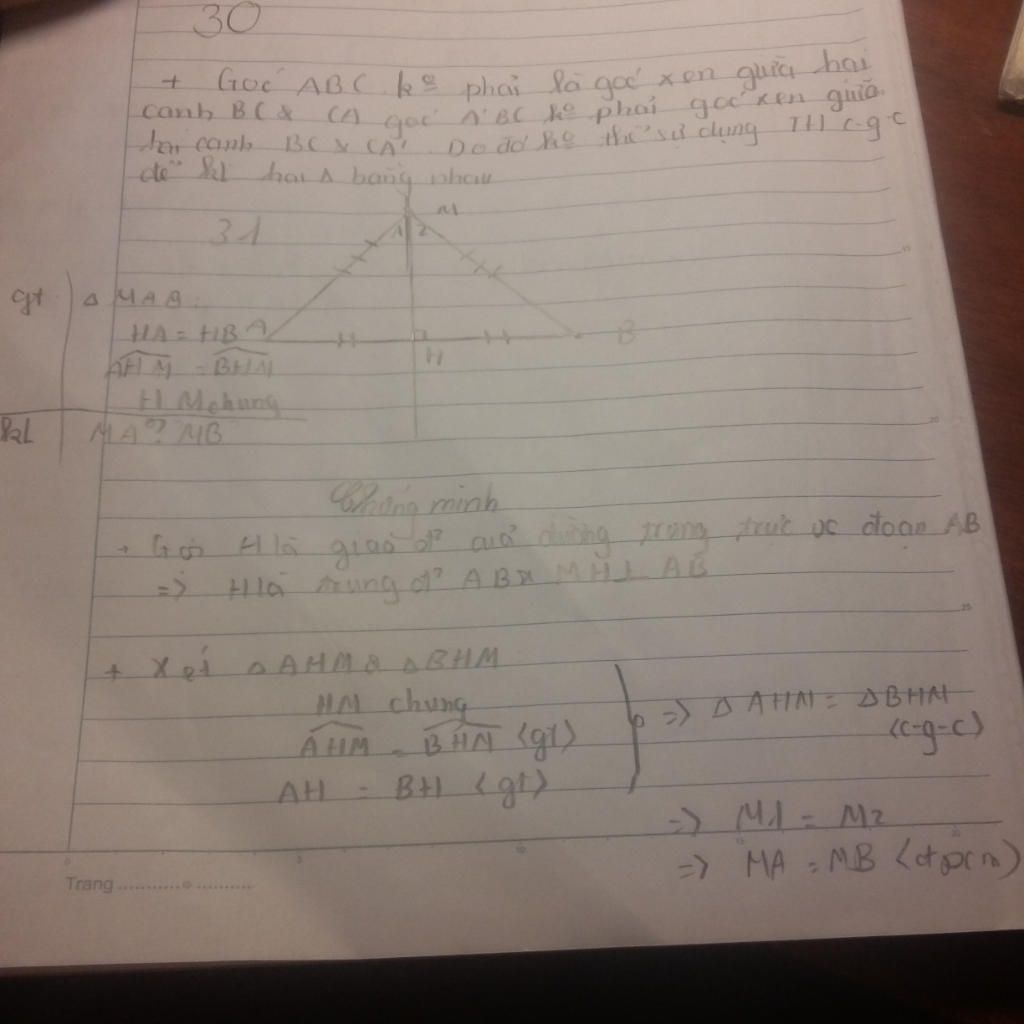 30
+ Góc ABC ko phải là góc xen giữa hai
canh BC & CA góc A'BC ko phải góc xen giữa
hai canh BC & CA'. Do đó ko thể sử dụng TH c-g-c
để kl hai Δ bằng nhau
31
M
1 2
A
H
B
gt Δ MAB
HA = HB
AHM = BHM
HM chung
kl MA ? MB
Chứng minh
+ Gọi H là giao đ² cuả đường trung trực vc đoạn AB
=> H là trung đ² AB & MH ⊥ AB
+ Xét Δ AHM & Δ BHM
HM chung
AHM = BHM (gt)
AH = BH (gt)
=> Δ AHM = Δ BHM
(c-g-c)
=> M1 = M2
=> MA = MB (đpcm)
Trang